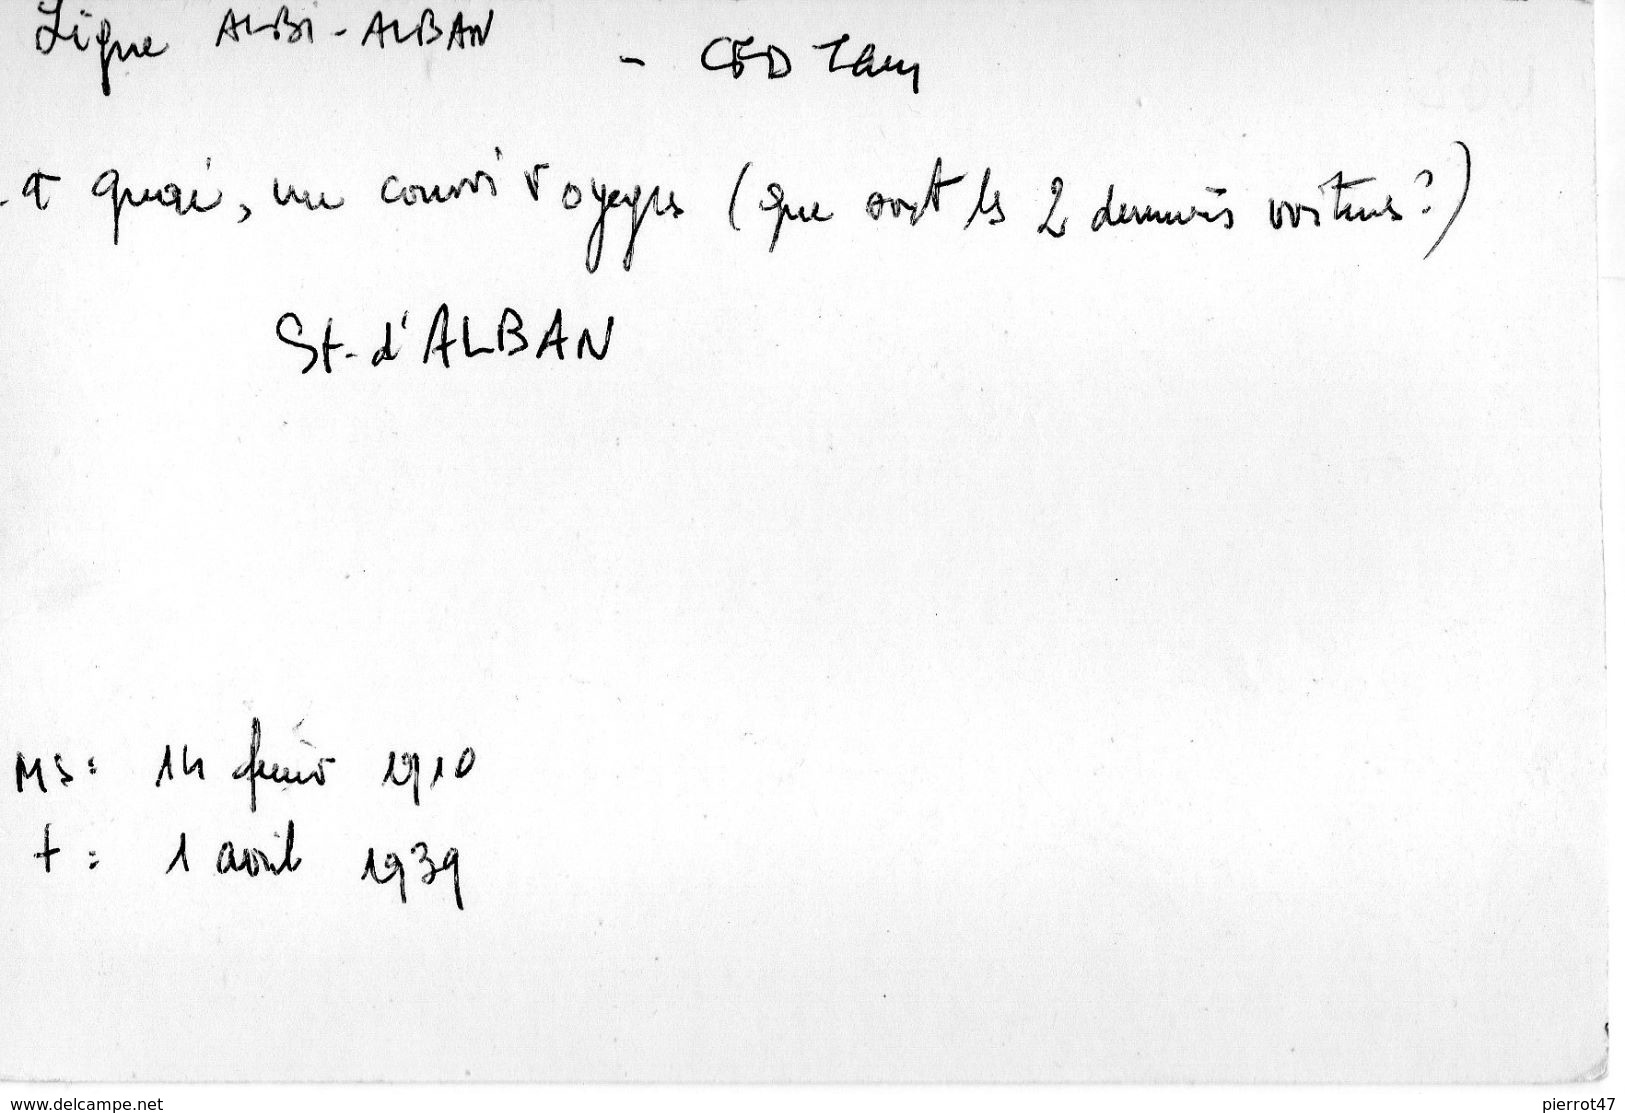 Ligne ALBI-ALBAN - CFD Tarn
- A quai, un convoi voyages (que sont les 2 dernières voitures?)
St. d'ALBAN
MS: 14 février 1910
+: 1 avril 1939
www.delcampe.net pierrot47